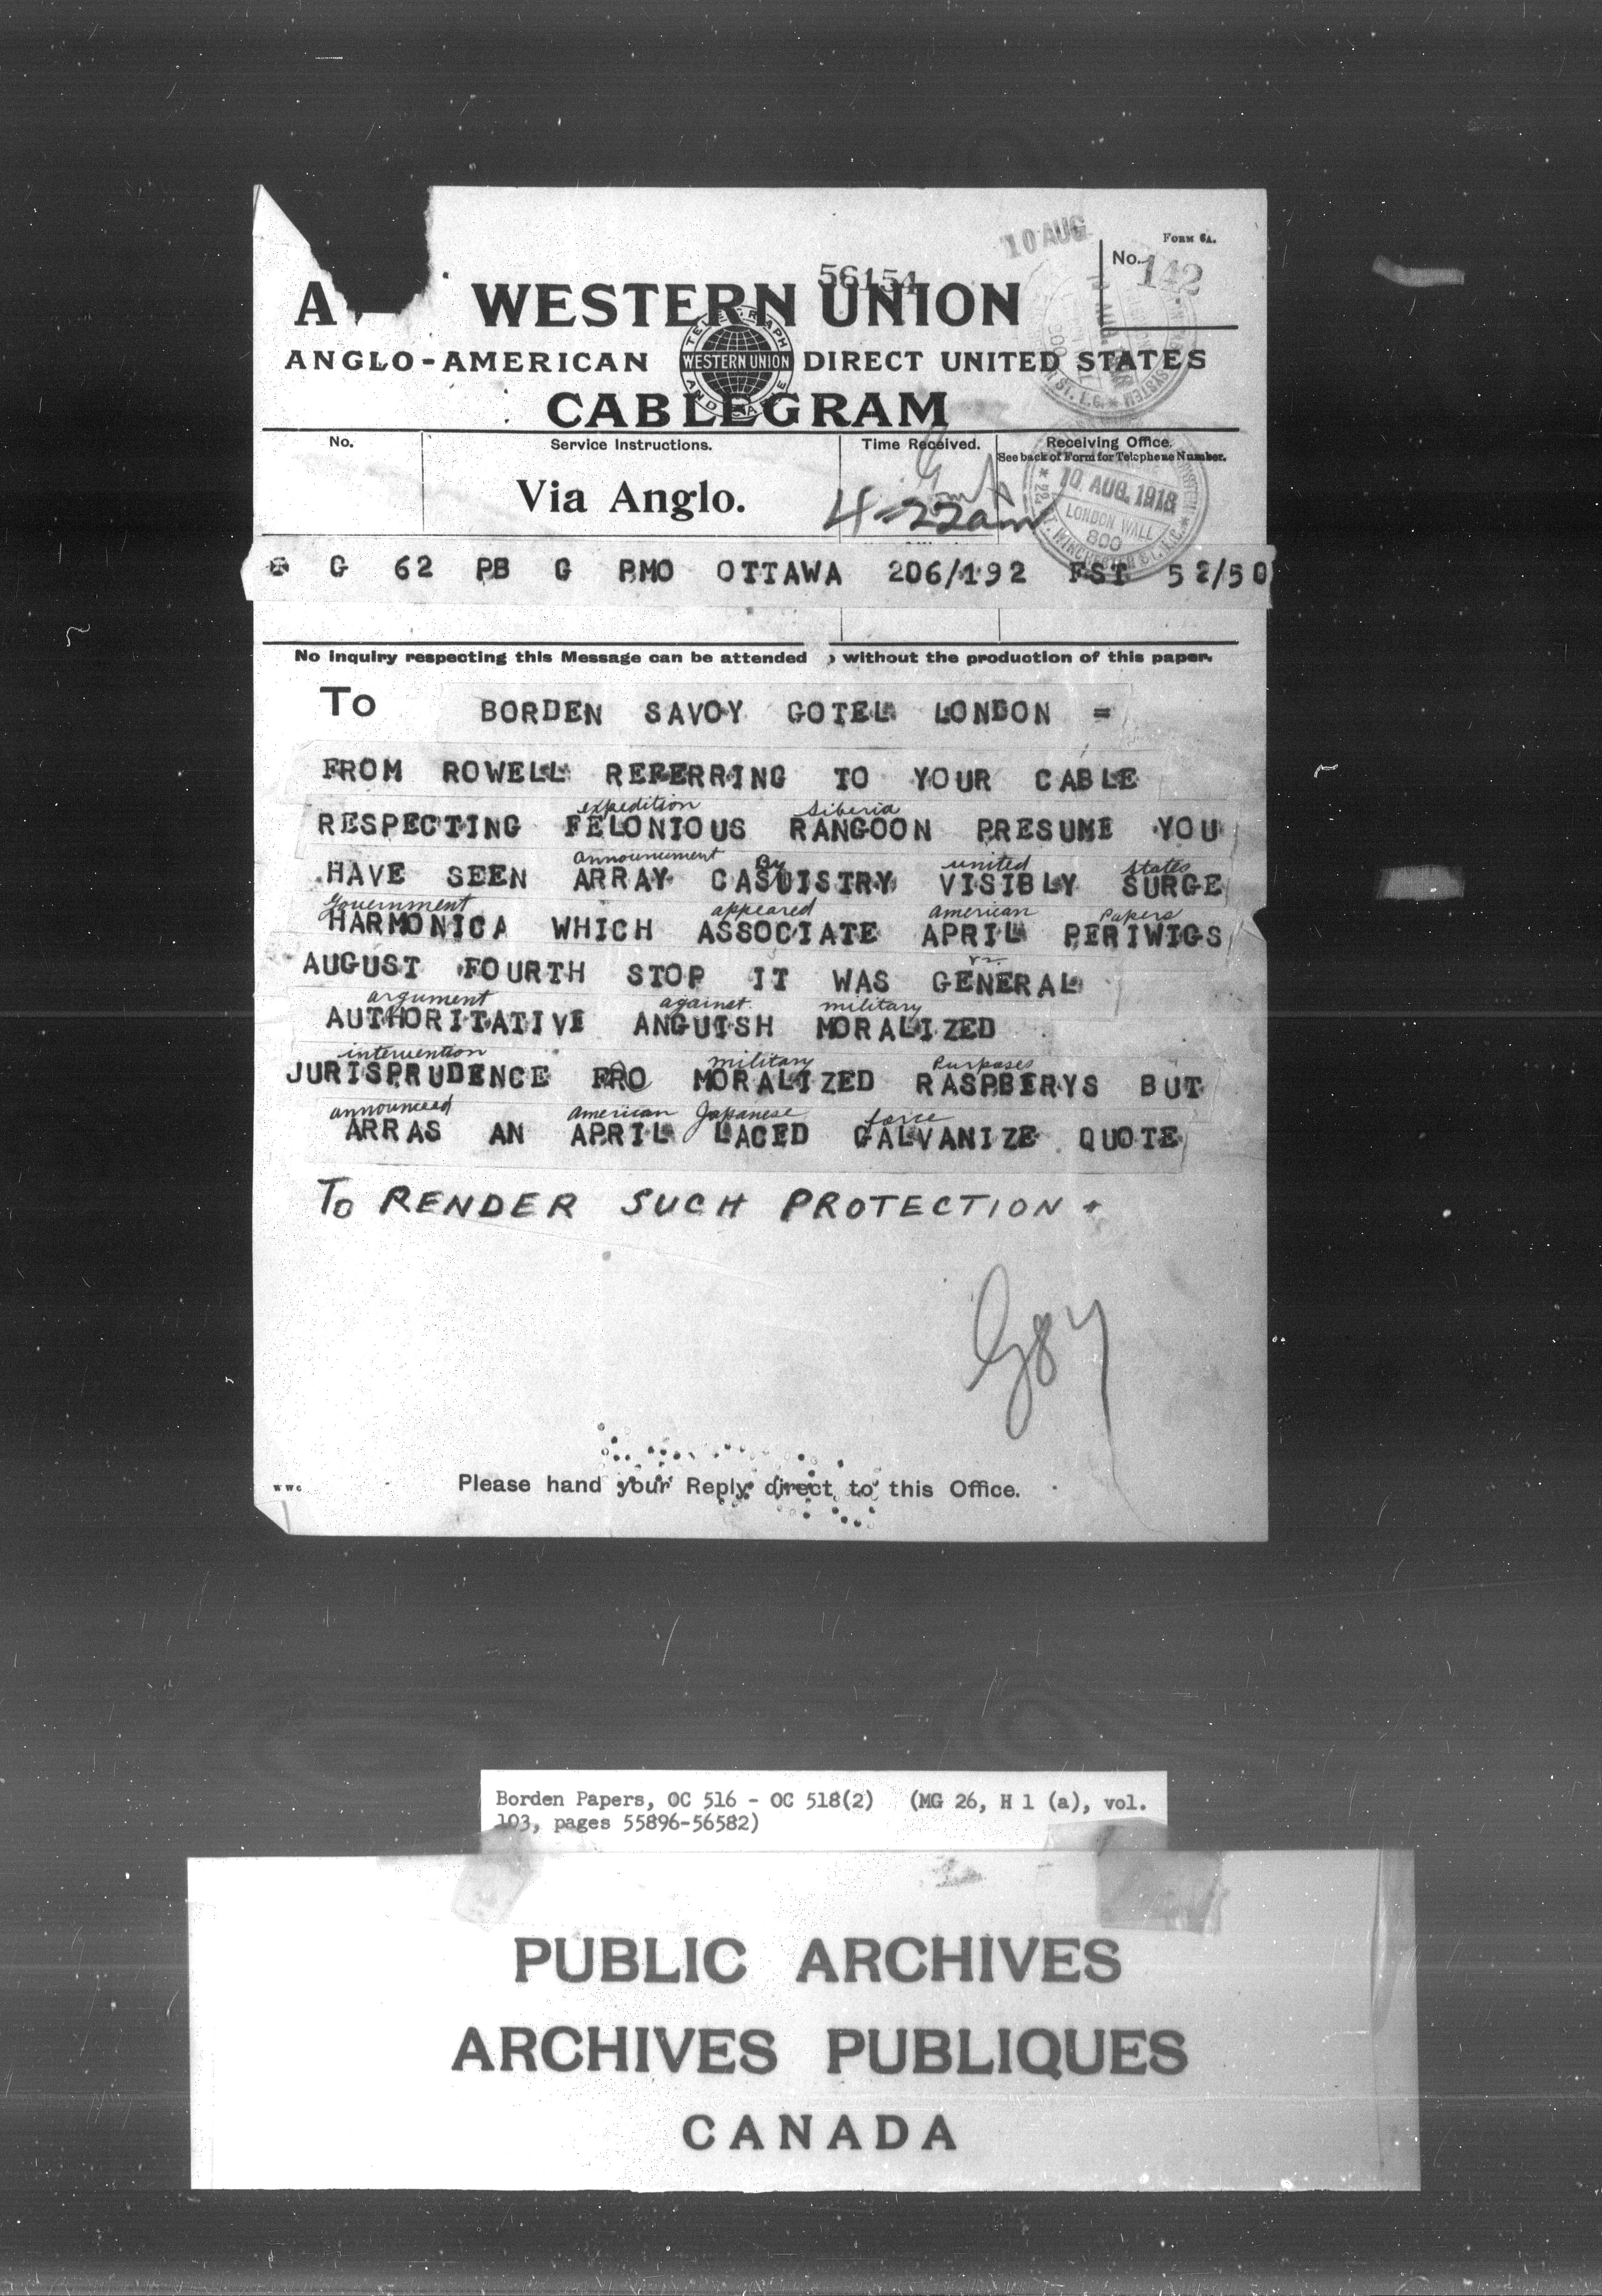 10 AUG
FORM 6A.
No. 142
56154
A WESTERN UNION
ANGLO-AMERICAN DIRECT UNITED STATES
TELEGRAPH AND CABLE
WESTERN UNION
CABLEGRAM
No. Service Instructions. Time Received. Receiving Office.
See back of Form for Telephone Number.
Via Anglo.
4-22am
10 AUG. 1918
LONDON WALL
800
G 62 PB G PMO OTTAWA 206/192 FST 52/50
No inquiry respecting this Message can be attended without the production of this paper.
To BORDEN SAVOY GOTEL LONDON =
FROM ROWELL REFERRING TO YOUR CABLE
expedition Siberia
RESPECTING FELONIOUS RANGOON PRESUME YOU
announcement By united states
HAVE SEEN ARRAY CASUISTRY VISIBLY SURGE
Government appeared american Papers
HARMONICA WHICH ASSOCIATE APRIL PERIWIGS
AUGUST FOURTH STOP IT WAS GENERAL
argument against military
AUTHORITATIVE ANGUISH MORALIZED
intervention military Purposes
JURISPRUDENCE PRO MORALIZED RASPBERYS BUT
announced american Japanese force
ARRAS AN APRIL LACED GALVANIZE QUOTE
TO RENDER SUCH PROTECTION +
WWC
Please hand your Reply direct to this Office.
Borden Papers, OC 516 - OC 518(2) (MG 26, H 1 (a), vol.
103, pages 55896-56582)
PUBLIC ARCHIVES
ARCHIVES PUBLIQUES
CANADA